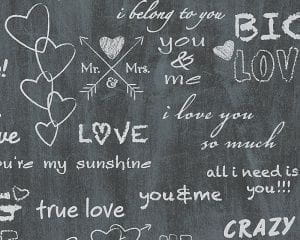 i belong to you
BIG
you
&
me
LOV
Mr. Mrs.
&
i love you
so much
LOVE
you're my sunshine
all i need is
you!!!
you&me
true love
CRAZY